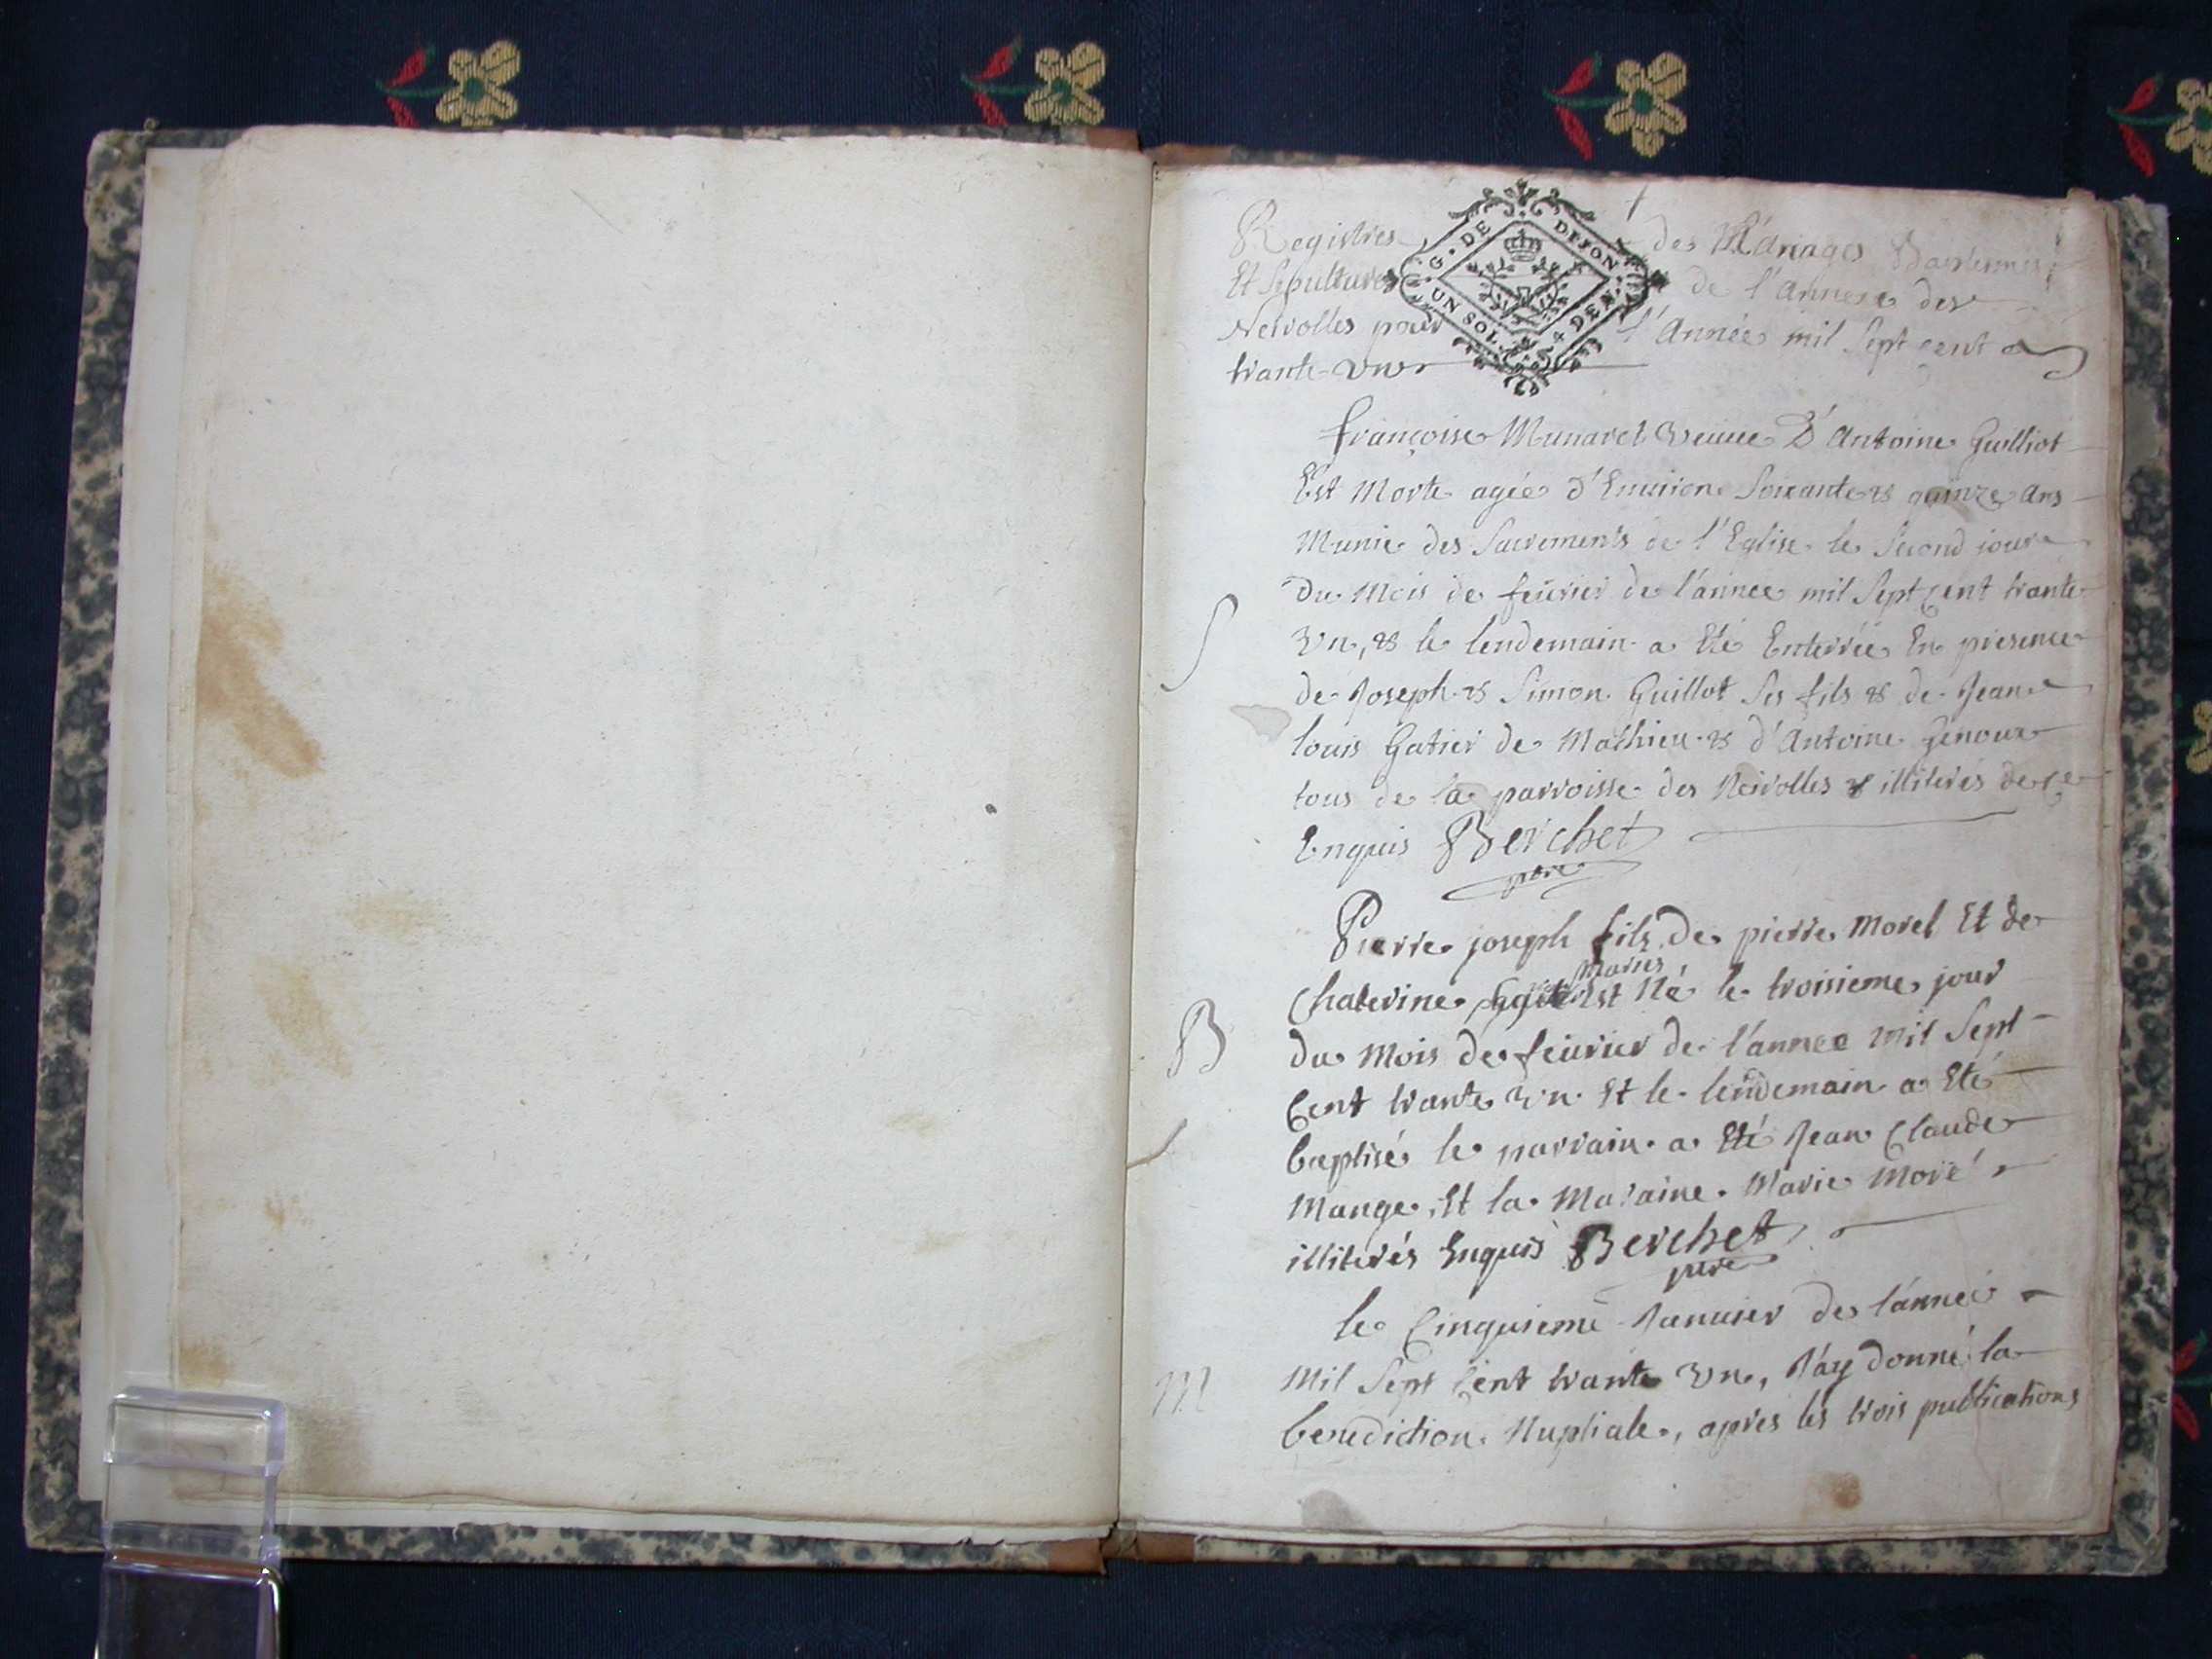 Registres des Mariages Baptemes
Et Sepultures de l'Annexe des
Neirolles pour l'Année mil Sept cent
trante-un
G. DE DIJON
UN SOL. 4 DEN.
françoise Munaret veuue D'Antoine Guilliot
Est Morte agée d'Enuiron Soixante & quinze ans
Munie des Sacrements de l'Eglise le Second jour
Du Mois de feurier de l'année mil Sept Cent trante
Vn, & le lendemain a Eté Enterrée En presence
S
de Joseph & Simon Guillot Ses fils & de Jean
louis Gatier de Mathieu & d'Antoine Genoux
tous de la parroisse des Neirolles & illiterés de ce
Enquis Berchet
Pierre joseph fils de pierre Morel Et de
Chaterine mariés Est Né le troisieme jour
B
du Mois de feiurier de l'année mil Sept
Cent trante vn Et le lendemain a Eté
baptisé le parrain a Eté Jean Claude
Mange Et la Maraine Marie Moré
illiterés Enquis Berchet
le Cinquieme Januier de l'année
M
Mil Sept Cent trante Vn, J'ay donné la
benediction Nuptiale, apres les trois publications